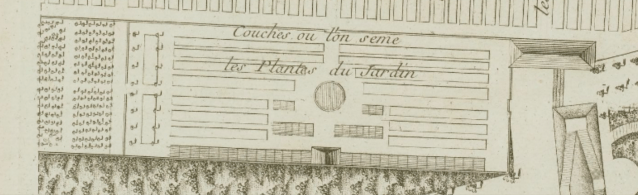 Couches ou l'on seme
les Plantes du Jardin